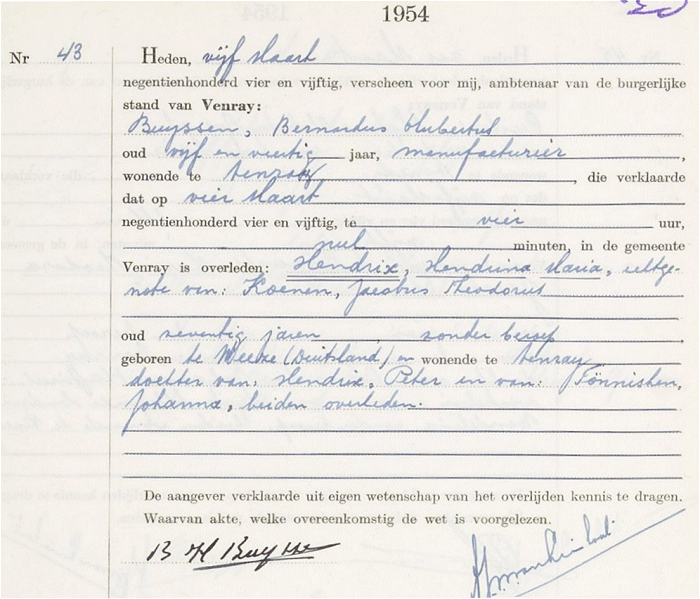 1954
Nr 43
Heden, vijf Maart
negentienhonderd vier en vijftig, verscheen voor mij, ambtenaar van de burgerlijke
stand van Venray:
Buyssen, Bernardus Hubertus
oud vijf en veertig jaar, manufacturier,
wonende te Venray, die verklaarde
dat op vier Maart
negentienhonderd vier en vijftig, te vier uur,
nul minuten, in de gemeente
Venray is overleden: Hendrix, Hendrina Maria, echtge-
note van: Koenen, Jacobus Theodorus
oud zeventig jaren, zonder beroep,
geboren te Weeze (Duitsland) en wonende te Venray
dochter van: Hendrix, Peter en van: Tönnishen,
Johanna, beiden overleden.
De aangever verklaarde uit eigen wetenschap van het overlijden kennis te dragen.
Waarvan akte, welke overeenkomstig de wet is voorgelezen.
B H Buysse